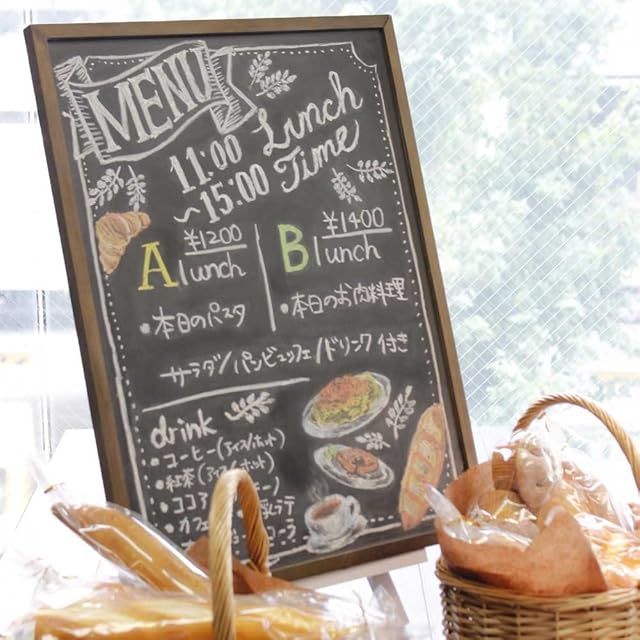 MENU
11:00
～15:00
Lunch
Time
A
¥1200
lunch
・本日のパスタ
B
¥1400
lunch
・本日のお肉料理
サラダ/パンビュッフェ/ドリンク 付き
drink
・コーヒー(アイス/ホット)
・紅茶(アイス/ホット)
・ココア
・オフェ